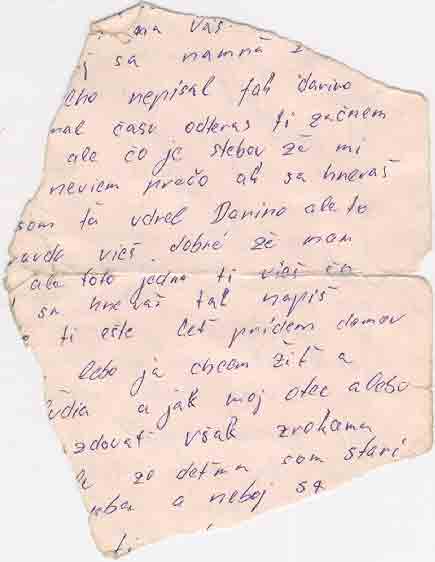 ma váš
sa namňa z
cho nepísal tak darino
mal času odteras ti začnem
ale čo je stebou že mi
neviem prečo ak sa hneváš
som ťa udrel Darino ale to
vieš dobré že mam
ale toto jedno ti vieš
sa hneváš tak napíš
ti ešte keť prídem domov
lebo ja chcem žiť a
ludia a jak moj otec alebo
zdovať však zrohama
zo deťma som stari
a neboj sa
ti